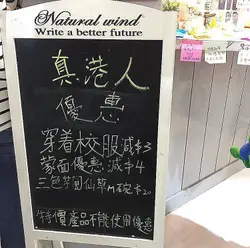 Natural wind
Write a better future
真港人
優惠
穿着校服減$3
蒙面優惠減$4
三色芋圓仙草M碗$20
特價產品不能使用優惠